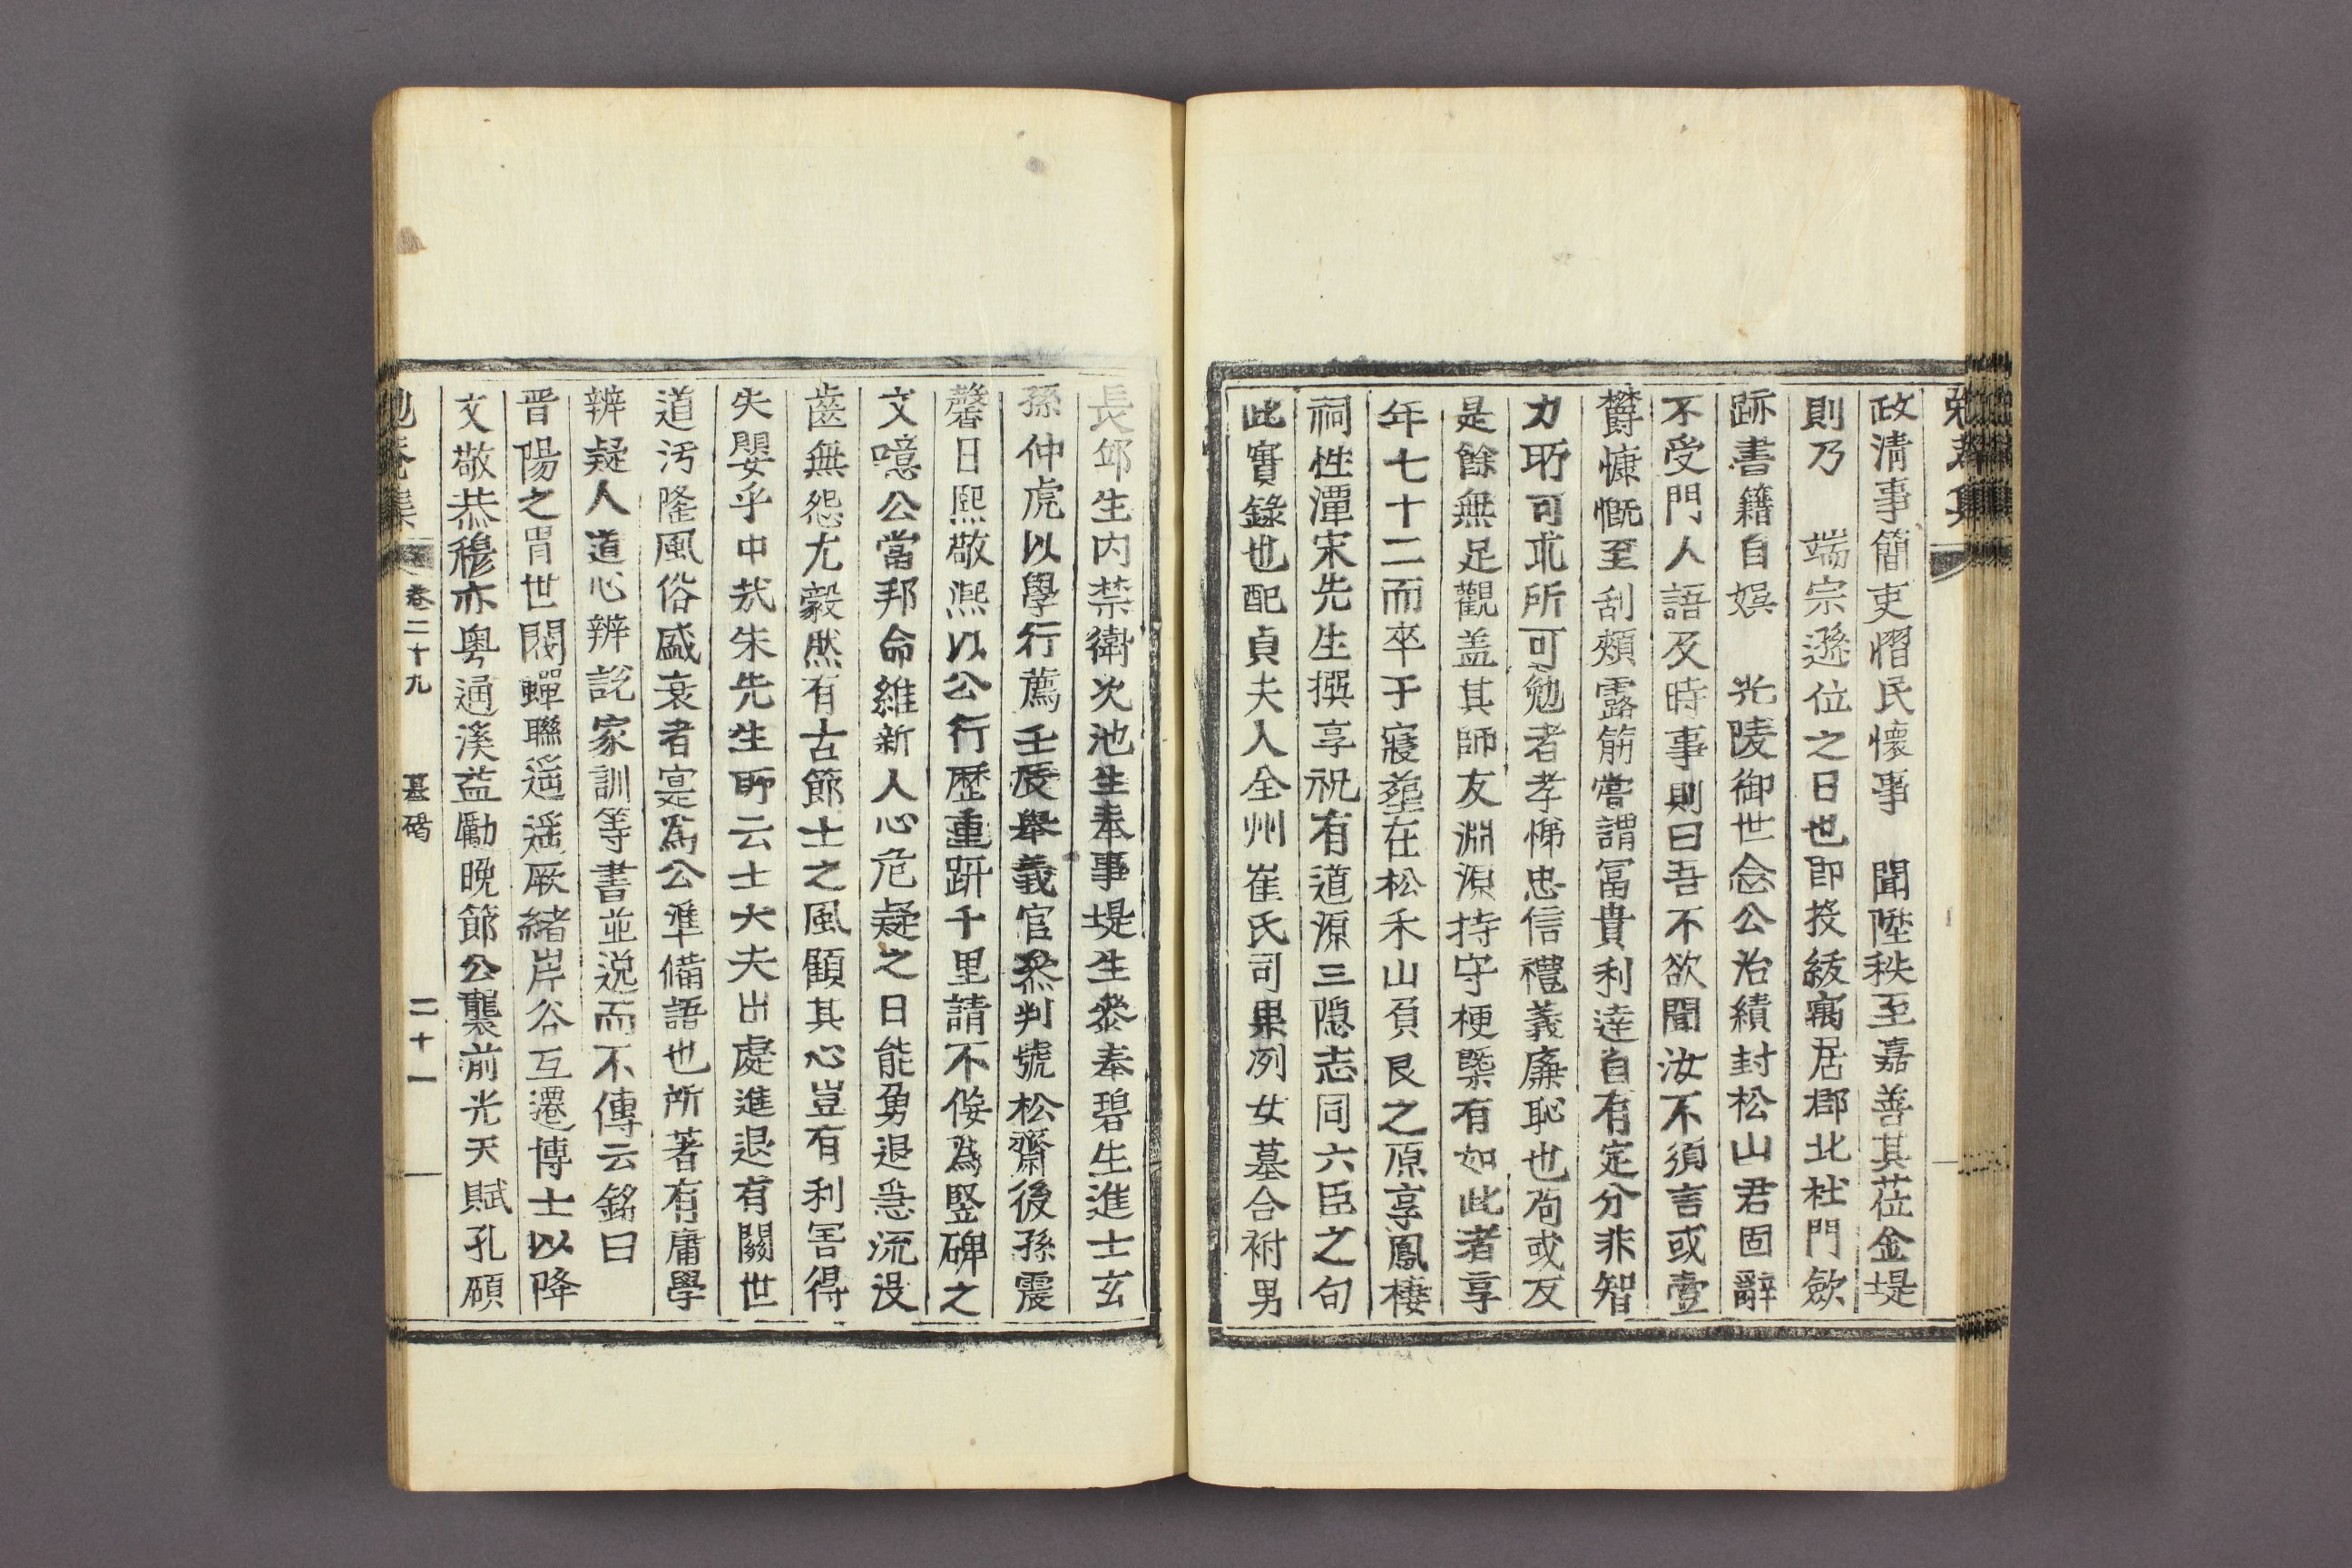 政清事簡吏慴民懷事　聞陞秩至嘉善其莅金堤
則乃　端宗遜位之日也即投紱寓居郡北杜門歛
跡書籍自娛　光陵御世念公治績封松山君固辭
不受門人語及時事則曰吾不欲聞汝不須言或壹
欝慷慨至刮頰露筋嘗謂冨貴利達自有定分非智
力所可求所可勉者孝悌忠信禮義廉恥也苟或反
是餘無足觀盖其師友淵源持守梗槩有如此者享
年七十二而卒于寢葬在松禾山負艮之原享鳳棲
祠性潭宋先生撰享祝有道源三隱志同六臣之句
此實錄也配貞夫人全州崔氏司果冽女墓合祔男
長邱生内禁衛次池生奉事堤生叅奉碧生進士玄
孫仲虎以學行薦壬辰舉義官叅判號松齋後孫震
馨日熙敬凞以公行歷重趼千里請不佞為竪碑之
文噫公當邦命維新人心危疑之日能勇退急流沒
齒無怨尤毅然有古節士之風顧其心豈有利害得
失嬰乎中㢤朱先生所云士大夫出處進退有關世
道汚隆風俗盛衰者寔為公準備語也所著有庸學
辨疑人道心辨說家訓等書並逸而不傳云銘曰
晋陽之冑世閥蟬聯遥遥厥緒岸谷互遷博士以降
文敬恭穆亦粤通溪益勵晩節公襲前光天賦孔碩
卷二十九　墓碣　二十一